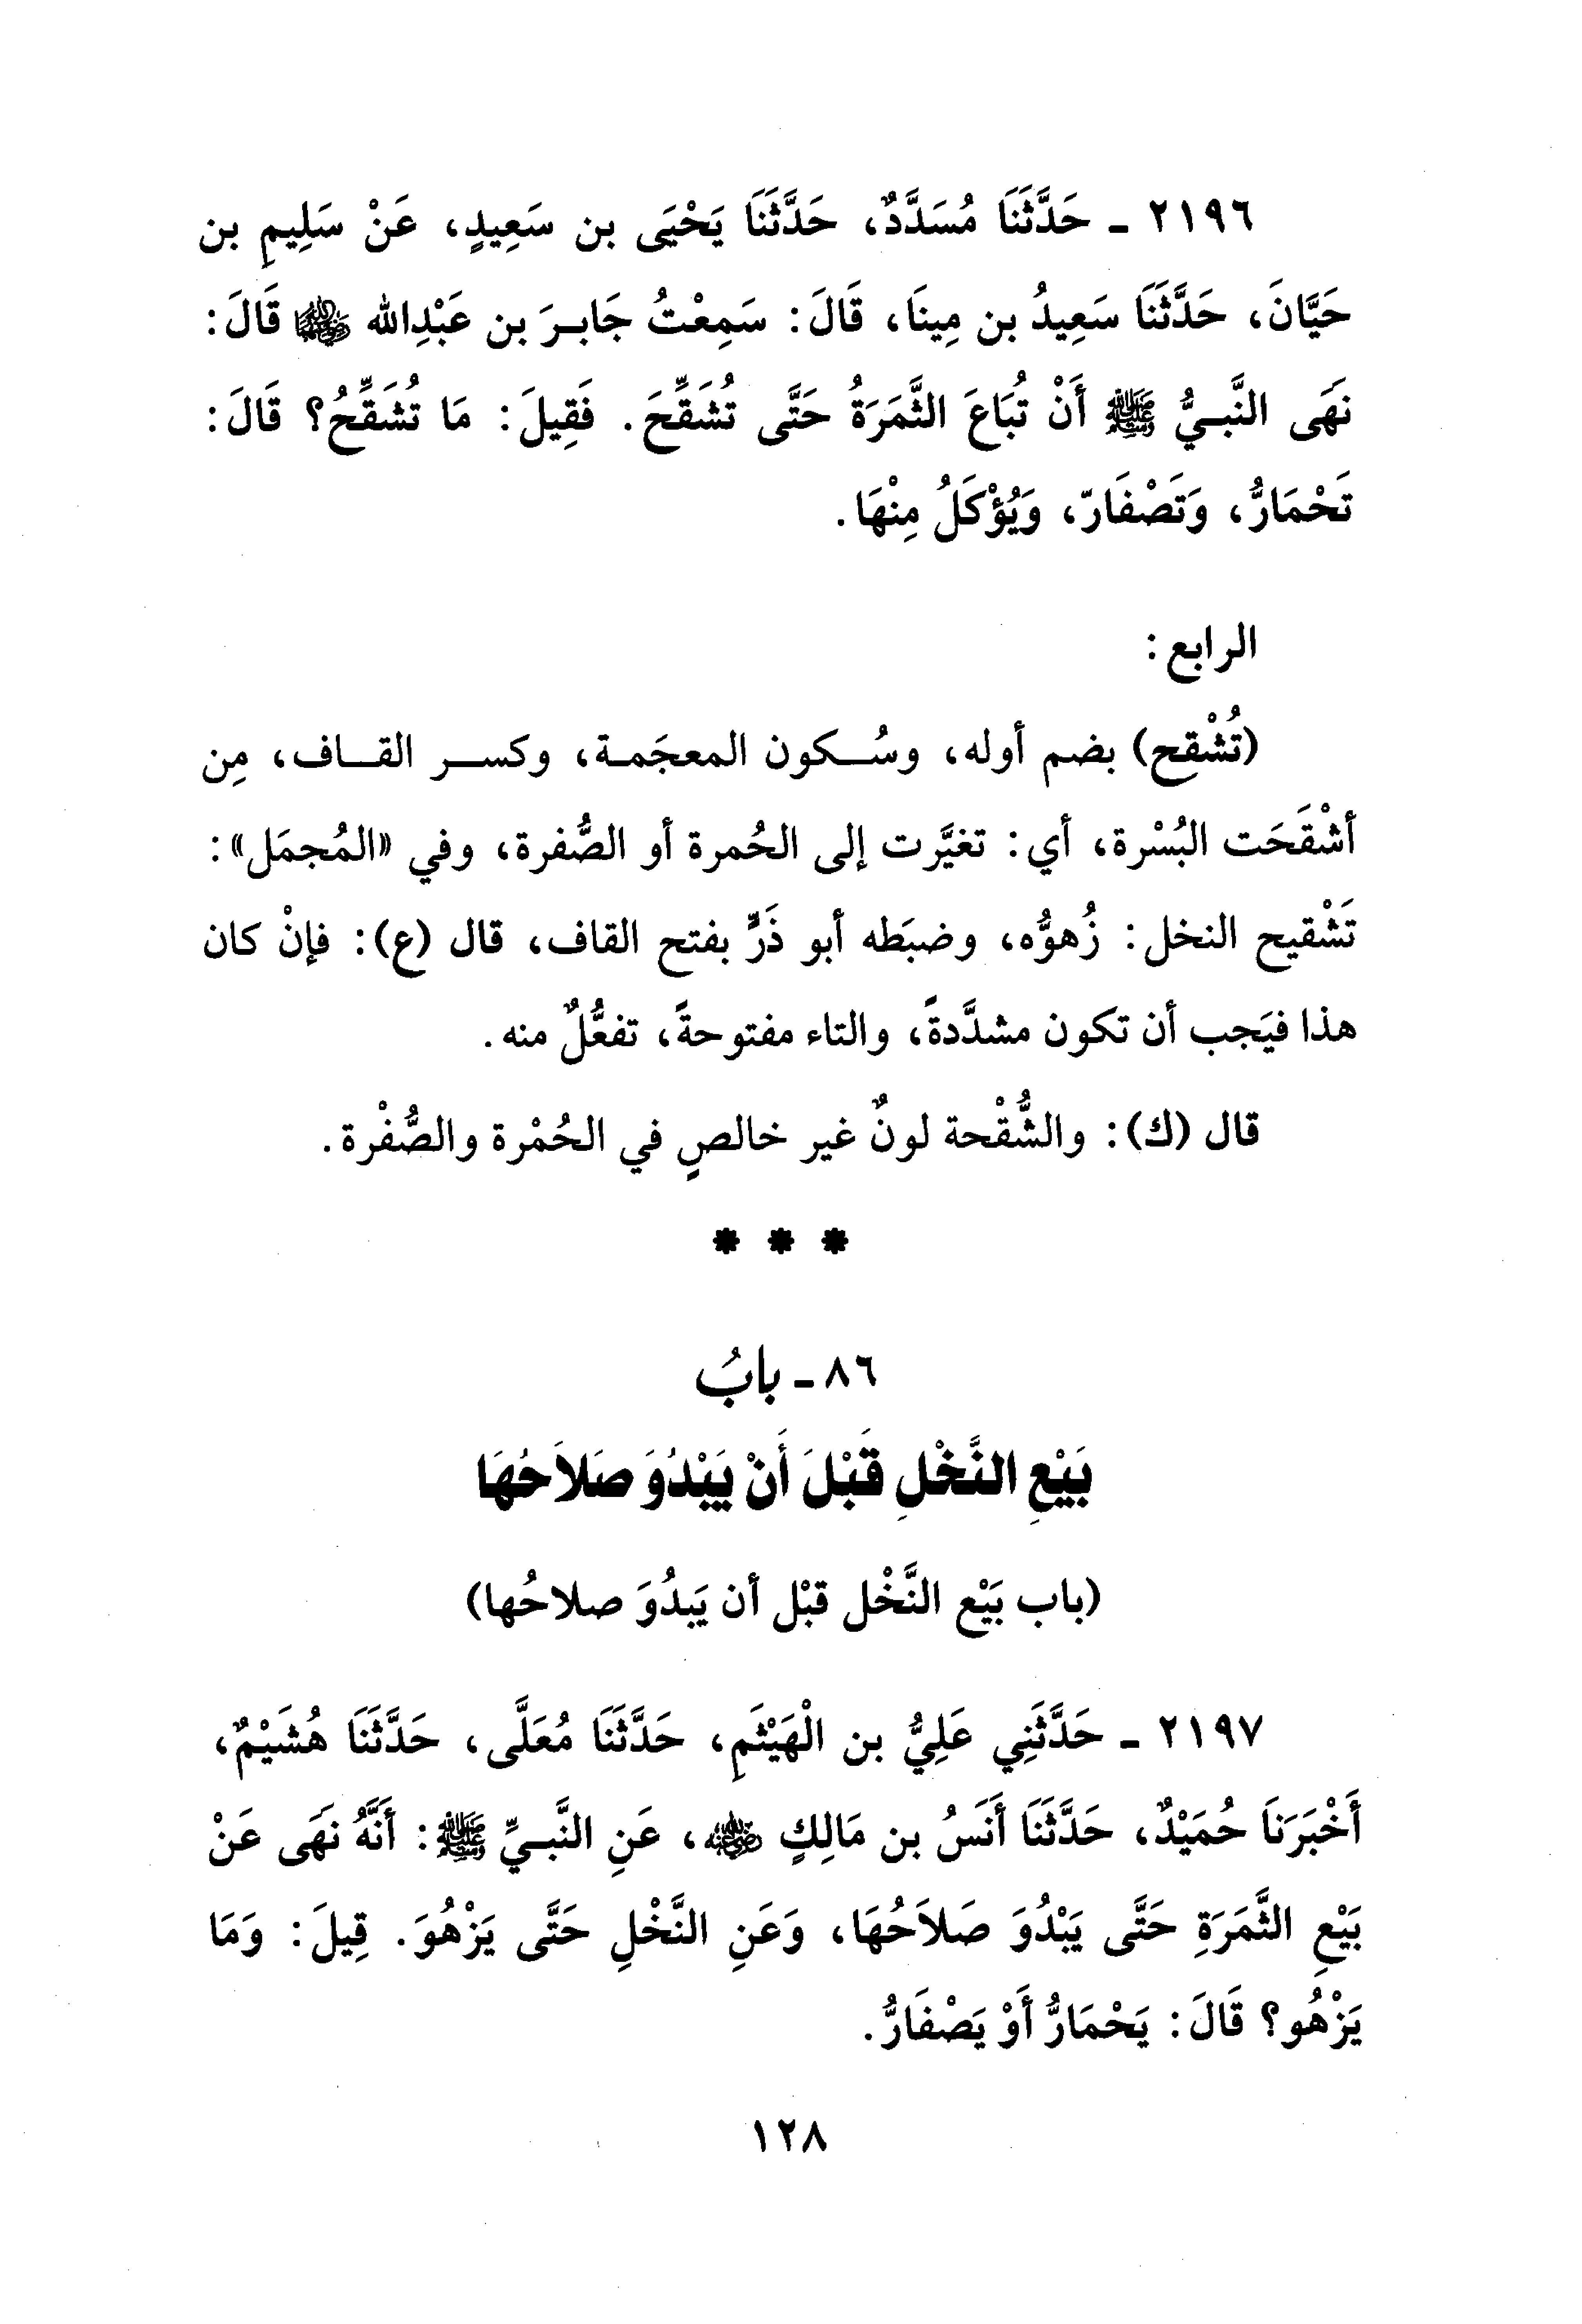 ٢١٩٦ - حَدَّثَنَا مُسَدَّدٌ، حَدَّثَنَا يَحْيَى بن سَعِيدٍ، عَنْ سَلِيمِ بن
حَيَّانَ، حَدَّثَنَا سَعِيدُ بن مِينَا، قَالَ: سَمِعْتُ جَابِرَ بن عَبْدِالله رضي الله عنهما قَالَ:
نَهَى النَّبيُّ ﷺ أَنْ تُبَاعَ الثَّمَرَةُ حَتَّى تُشَقِّحَ. فَقِيلَ: مَا تُشَقِّحُ؟ قَالَ:
تَحْمَارُّ، وَتَصْفَارّ، وَيُؤْكَلُ مِنْهَا.
الرابع:
(تُشْقح) بضم أوله، وسُكون المعجَمة، وكسر القاف، مِن
أشْقَحَت البُسْرة، أي: تغيَّرت إلى الحُمرة أو الصُّفرة، وفي «المُجمَل»:
تَشْقيح النخل: زُهوُّه، وضبَطه أبو ذَرٍّ بفتح القاف، قال (ع): فإنْ كان
هذا فيَجب أن تكون مشدَّدةً، والتاء مفتوحةً، تفعُّلٌ منه.
قال (ك): والشُّقْحة لونٌ غير خالصٍ في الحُمْرة والصُّفْرة.
* * *
٨٦ - بابُ
بَيْعِ النَّخْلِ قَبْلَ أَنْ يَبْدُوَ صَلاَحُهَا
(باب بَيْع النَّخْل قبْل أن يَبدُوَ صلاحُها)
٢١٩٧ - حَدَّثَنِي عَلِيُّ بن الْهَيْثَمِ، حَدَّثَنَا مُعَلَّى، حَدَّثَنَا هُشَيْمٌ،
أَخْبَرَنَا حُمَيْدٌ، حَدَّثَنَا أَنَسُ بن مَالِكٍ رضي الله عنه، عَنِ النَّبيِّ ﷺ: أَنَّهُ نَهَى عَنْ
بَيْعِ الثَّمَرَةِ حَتَّى يَبْدُوَ صَلاَحُهَا، وَعَنِ النَّخْلِ حَتَّى يَزْهُوَ. قِيلَ: وَمَا
يَزْهُو؟ قَالَ: يَحْمَارُّ أَوْ يَصْفَارُّ.
١٢٨